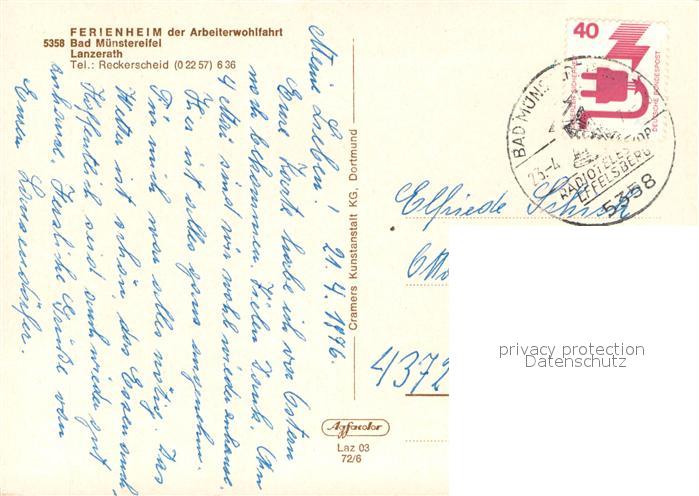 FERIENHEIM der Arbeiterwohlfahrt
5358 Bad Münstereifel
Lanzerath
Tel.: Reckerscheid (0 22 57) 6 36
21.4.1976.
Meine Lieben!
Eure Karte habe ich vor Ostern
noch bekommen. Vielen Dank. Am
4 Mai sind wir wohl wieder zuhause.
Hier ist alles ganz angenehm.
Für mich war alles nötig. Das
Wetter ist schön, das Essen auch
Hoffentlich seid auch wieder gut
zuhause. Herzliche Grüße von
Erwin
Cramers Kunstanstalt KG, Dortmund
Agfacolor
Laz 03
72/6
40
DEUTSCHE BUNDESPOST
BAD MÜNSTEREIFEL
23.-4
RADIOTELESKOP
EFFELSBERG
5358
Elfriede
4372
privacy protection
Datenschutz